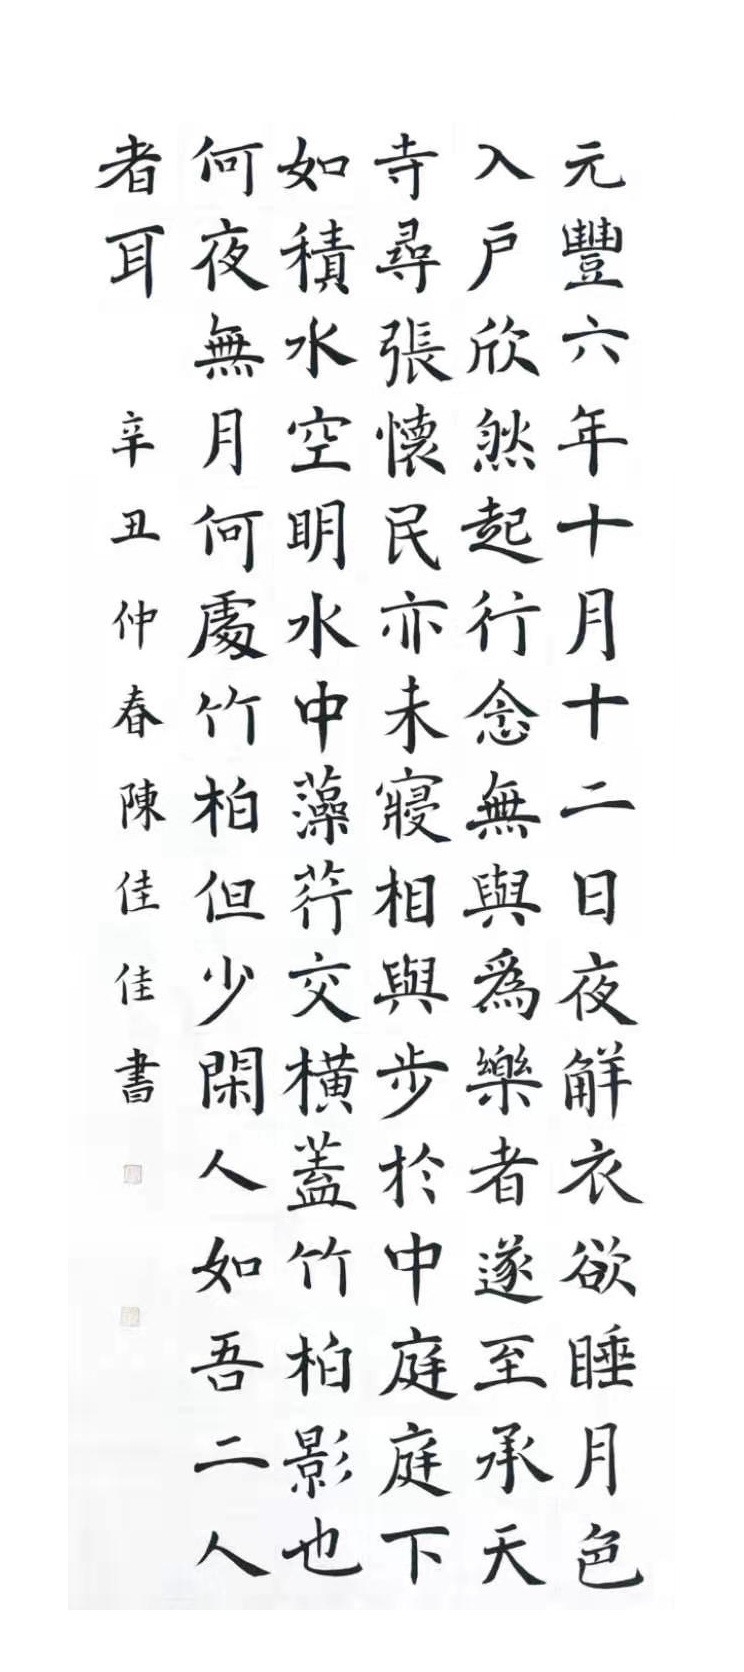 元豐六年十月十二日夜解衣欲睡月色
入戶欣然起行念無與為樂者遂至承天
寺尋張懷民亦未寢相與步於中庭庭下
如積水空明水中藻荇交橫蓋竹柏影也
何夜無月何處竹柏但少閑人如吾二人
者耳
辛丑仲春陳佳佳書